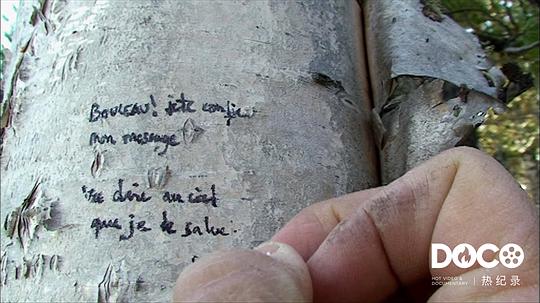 Bouleau! je te confie
mon message
Va dire au ciel
que je le salue.
DOCO
HOT VIDEO &
DOCUMENTARY
热纪录